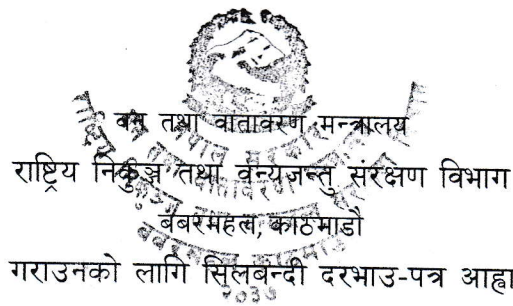 वन तथा वातावरण मन्त्रालय
राष्ट्रिय निकुञ्ज तथा वन्यजन्तु संरक्षण विभाग
बबरमहल, काठमाडौं
गराउनको लागि सिलबन्दी दरभाउ-पत्र आह्वा
२०३७